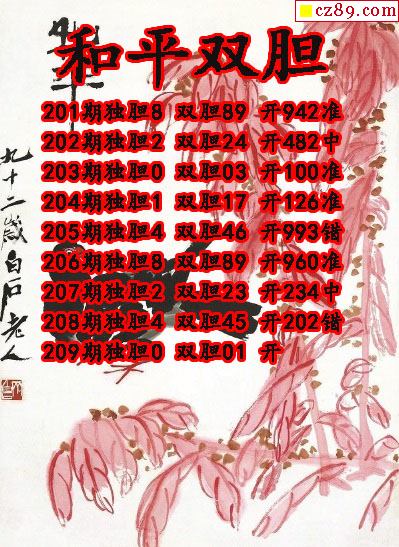 cz89.com
和平
和平双胆
201期独胆8 双胆89 开942准
202期独胆2 双胆24 开482中
203期独胆0 双胆03 开100准
204期独胆1 双胆17 开126准
205期独胆4 双胆46 开993错
206期独胆8 双胆89 开960准
207期独胆2 双胆23 开234中
208期独胆4 双胆45 开202错
209期独胆0 双胆01 开
九十二岁白石老人